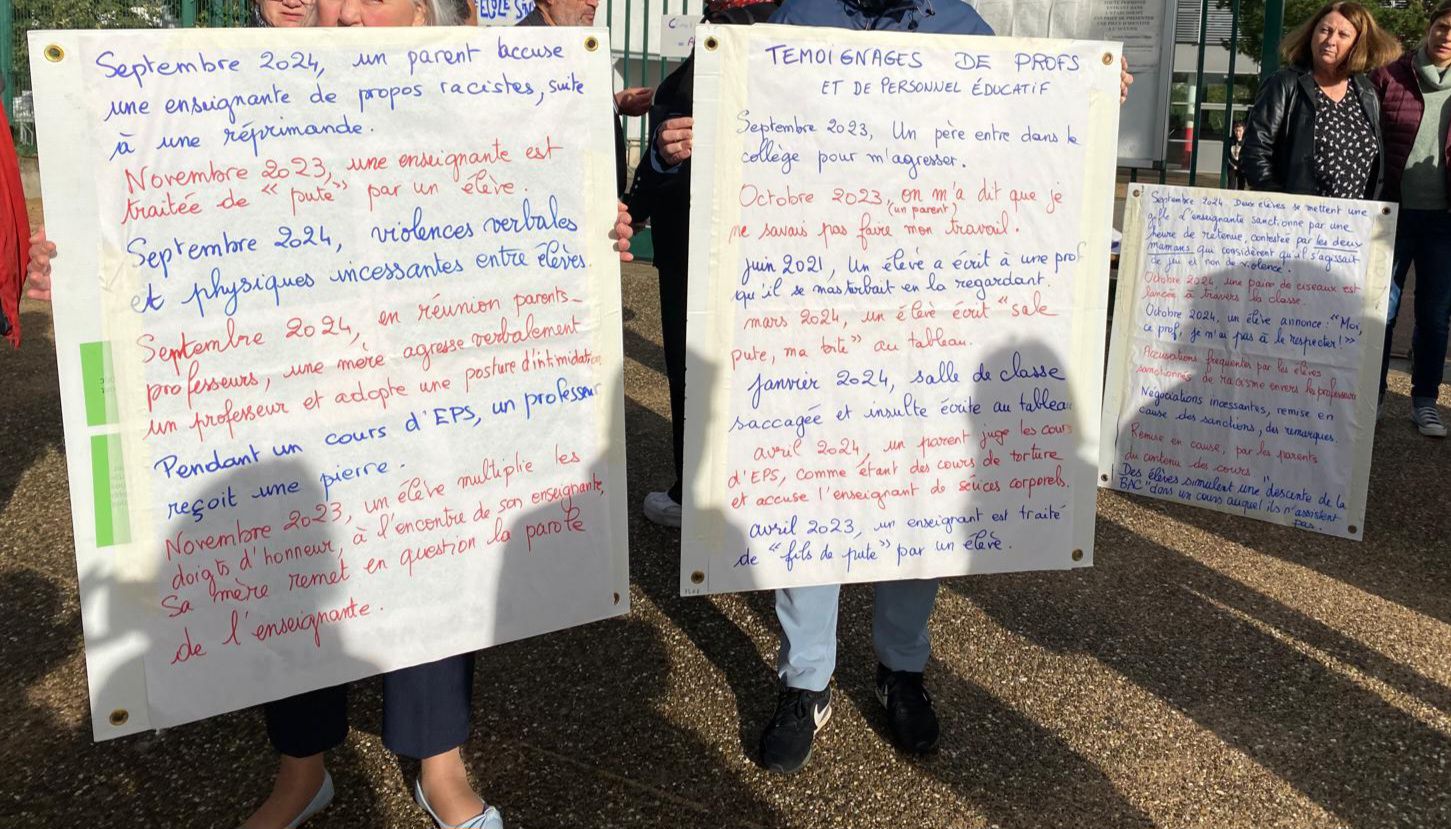 Septembre 2024, un parent accuse
une enseignante de propos racistes, suite
à une réprimande.
Novembre 2023, une enseignante est
traitée de "pute" par un élève.
Septembre 2024, violences verbales
et physiques incessantes entre élèves.
Septembre 2024, en réunion parents-
professeurs, une mère agresse verbalement
un professeur et adopte une posture d'intimidation
Pendant un cours d'EPS, un professeur
reçoit une pierre.
Novembre 2023, un élève multiplie les
doigts d'honneur, à l'encontre de son enseignante,
Sa mère remet en question la parole
de l'enseignante.
TEMOIGNAGES DE PROFS
ET DE PERSONNEL ÉDUCATIF
Septembre 2023, Un père entre dans le
collège pour m'agresser.
Octobre 2023, on m'a dit que je
(un parent)
ne savais pas faire mon travail.
Juin 2021, Un élève a écrit à une prof
qu'il se masturbait en la regardant.
mars 2024, un élève écrit "sale
pute, ma bite" au tableau.
Janvier 2024, salle de classe
saccagée et insulte écrite au tableau
avril 2024, un parent juge les cours
d'EPS, comme étant des cours de torture
et accuse l'enseignant de sévices corporels.
avril 2023, un enseignant est traité
de "fils de pute" par un élève.
Septembre 2024 Deux élèves se mettent une
gifle. L'enseignante sanctionne par une
heure de retenue, contestée par les deux
mamans qui considèrent qu'il s'agissait
de jeu et non de violence.
Octobre 2024, une paire de ciseaux est
lancée à travers la classe.
Octobre 2024, un élève annonce : "Moi,
ce prof, je n'ai pas à le respecter !"
Accusations fréquentes par les élèves
sanctionnés de racisme envers le professeur
Négociations incessantes, remise en
cause des sanctions, des remarques.
Remise en cause, par les parents
du contenu des cours
Des élèves simulent une "descente de la
BAC" dans un cours auquel ils n'assistent
pas.